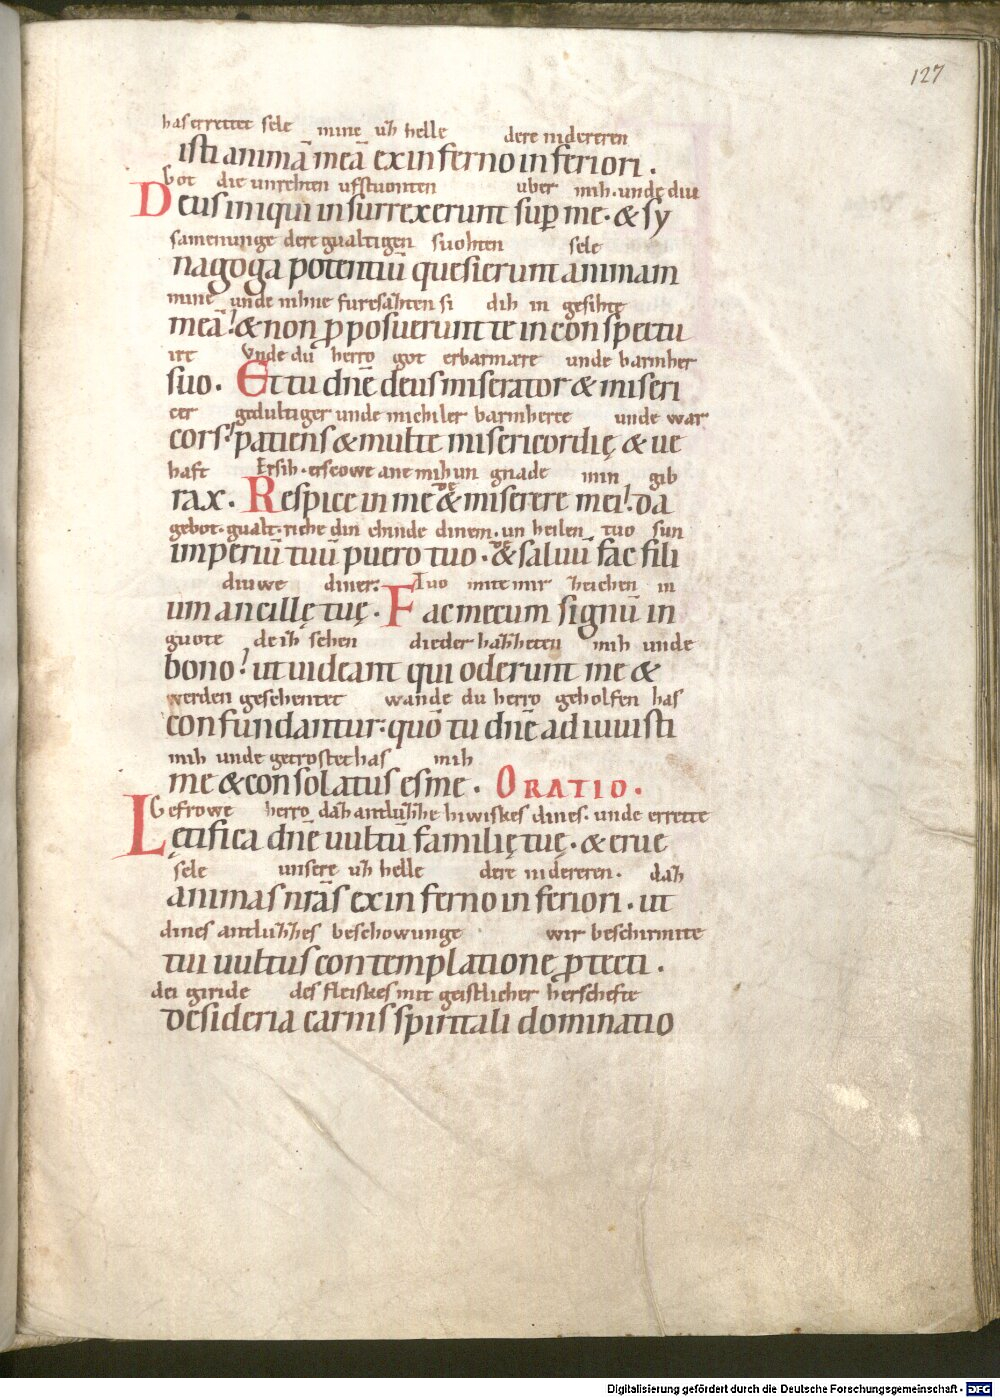 127
has errettet sele mine uʒ helle dere nidereren
isti animā meā ex inferno inferiori .
Got die unrehten ufstuonten uber mih . unde diu
Deus iniqui insurrexerunt sup̄ me . & sy
samenunge dere gualtigen suohten sele
nagoga potentiū quesierunt animam
mine unde nihne furesazten si dih in gesihte
meā ! & non p̱posuerunt te in conspectu
ire Unde du herro got erbarmare unde barmher
suo . Et tu dn̄e deus miserator & miseri
cer gedultiger unde michiler barmherce unde war
cors ! patiens & multe misericordię & ue
haft Ersih . erscowe ane mih un gnade min gib
rax . Respice in me & miserere mei ! da
gebot . gualt . riche din chinde dinem . un heilen tuo sun
imperiū tuū puero tuo . & saluū fac fili
diuwe diner . Tuo mite mir zeichen in
um ancillę tuę . Fac mecum signū in
guote de iz sehen dieder hazzeten mih unde
bono ! ut uideant qui oderunt me &
werden geschentet wande du herro geholfen has
confundantur : quō tu dn̄e adiuuisti
mih unde getrostet has mih
me & consolatus es me . ORATIO .
Gefrowe herro daz antluzze hiwiskes dines . unde errette
Lętifica dn̄e uultū familię tuę . & erue
sele unsere uz helle dere nidereren . daz
animas nr̄as ex inferno inferiori . ut
dines antluzzes beschowunge wir beschirmite
tui uultus contemplatione p̱tecti .
dei giride des fleiskes mit geistlicher herschefte
desideria carnis spiritali dominatio
Digitalisierung gefördert durch die Deutsche Forschungsgemeinschaft - DFG